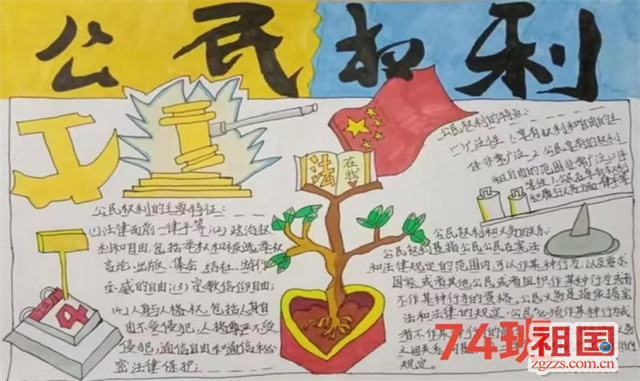 公民权利
法
在我
公民权利的主要特征:
(1)法律面前一律平等;(2)政治权
利和自由,包括选举权和被选举权
言论、出版、集会、结社、游行
示威的自由;(3)宗教信仰自由;
(4)人身与人格权,包括人身自
由不受侵犯,人格尊严不受
侵犯,通信自由和通信秘
密法律保护;
4
公民权利的特征:
(1)广泛性:1.享有权利和自由的主
体非常广泛 2.公民享有的权利
和自由的范围非常广泛
公民权利和义务的关系:
公民权利是指公民在宪法
和法律规定的范围内,可以作某种行为,以及要求
国家或者其他公民或者组织作某种行为或者
不作某种行为的资格。公民义务是指依据宪
法和法律的规定,公民必须作某种行为或
者不作某种行为的
之间关系
规定。
74班
祖国
gzzzs.cn